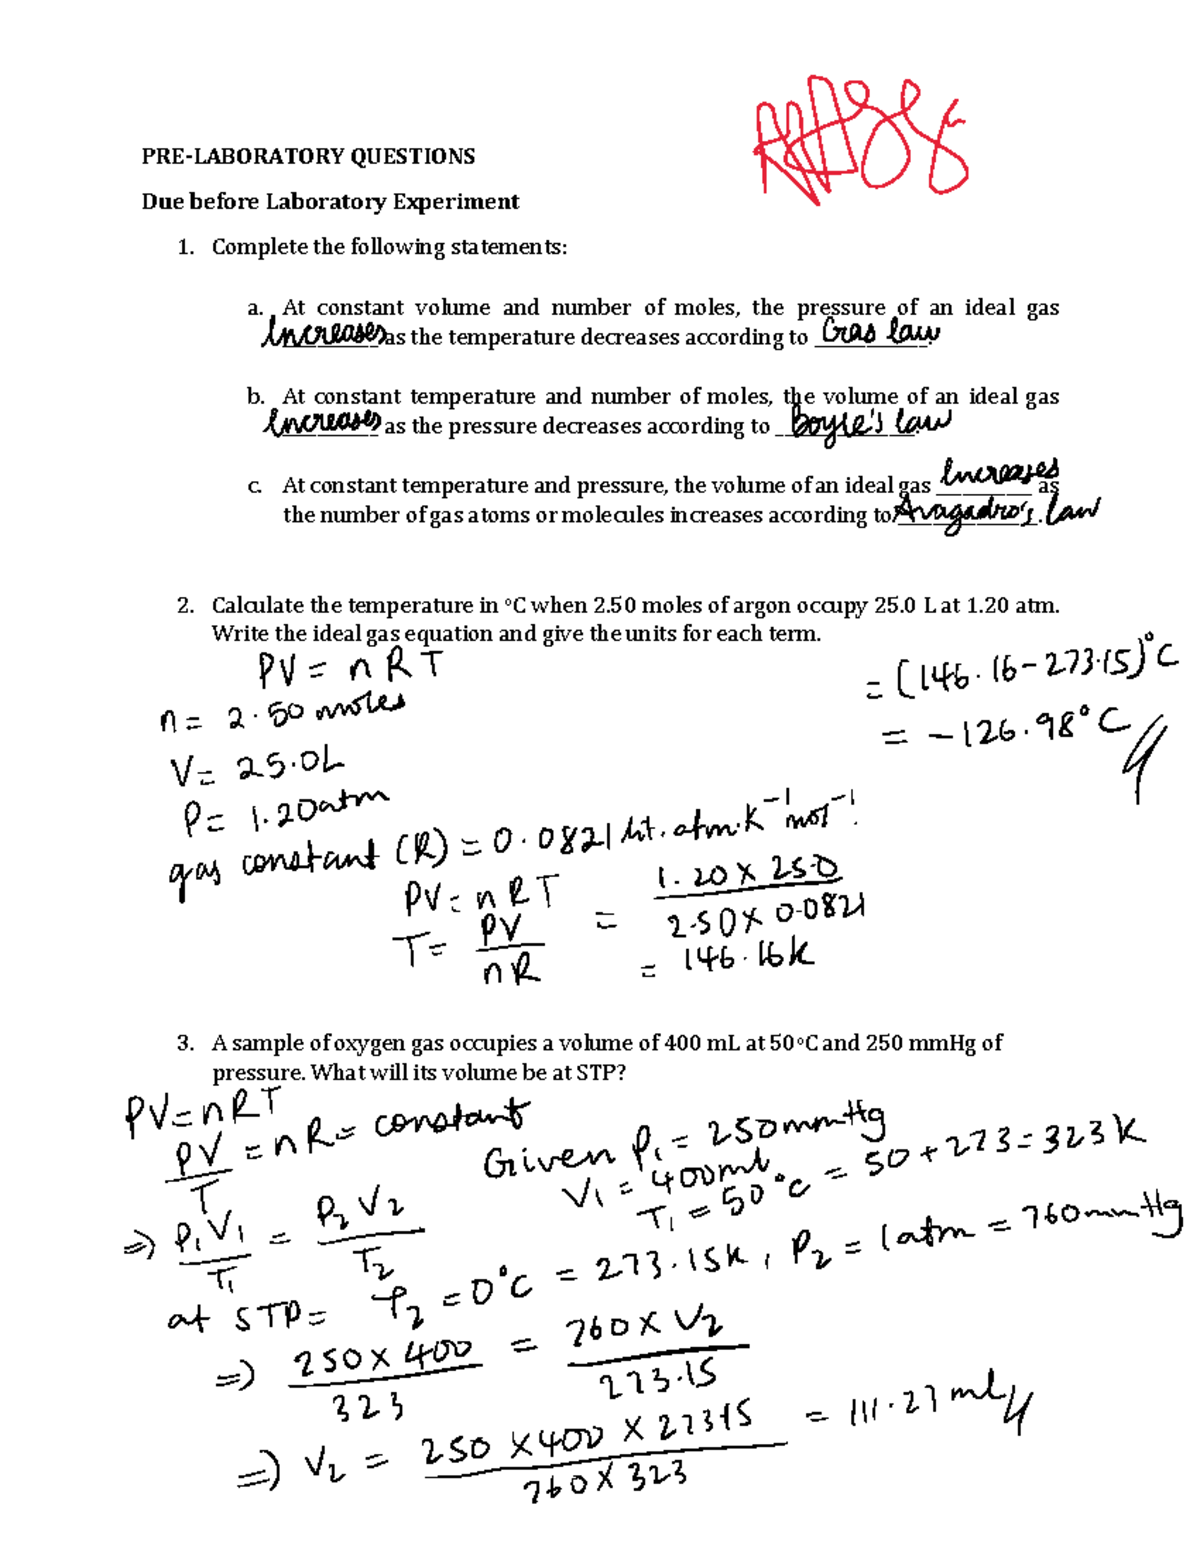 PRE-LABORATORY QUESTIONS
Due before Laboratory Experiment
1. Complete the following statements:
a. At constant volume and number of moles, the pressure of an ideal gas
Increases as the temperature decreases according to Gas law.
b. At constant temperature and number of moles, the volume of an ideal gas
Increases as the pressure decreases according to Boyle's law
c. At constant temperature and pressure, the volume of an ideal gas Increases as
the number of gas atoms or molecules increases according to Avagadro's law
2. Calculate the temperature in °C when 2.50 moles of argon occupy 25.0 L at 1.20 atm.
Write the ideal gas equation and give the units for each term.
PV = nRT
n = 2.50 moles
V = 25.0L
P = 1.20atm
gas constant (R) = 0.0821 lit.atm.K⁻¹mol⁻¹.
PV = nRT
T = PV/nR = 1.20 x 25.0/2.50 x 0.0821
= 146.16k
= (146.16 - 273.15)°C
= -126.98°C
3. A sample of oxygen gas occupies a volume of 400 mL at 50°C and 250 mmHg of
pressure. What will its volume be at STP?
PV = nRT
PV/T = nR = constant
Given P₁ = 250mmHg
V₁ = 400ml
T₁ = 50°C = 50 + 273 = 323K
=> P₁V₁/T₁ = P₂V₂/T₂
at STP = T₂ = 0°C = 273.15k, P₂ = 1atm = 760mmHg
=> 250 x 400/323 = 760 x V₂/273.15
=> V₂ = 250 x 400 x 273.15/760 x 323 = 111.27 ml